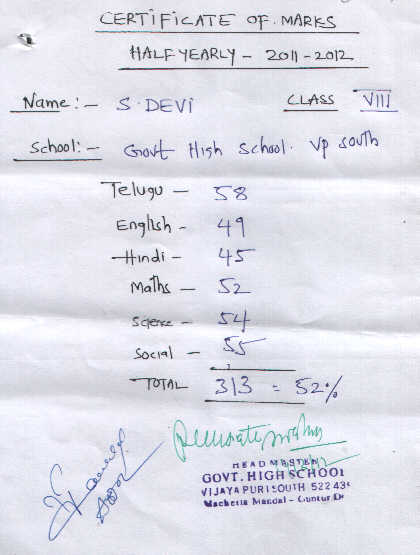 CERTIFICATE OF MARKS
HALF YEARLY - 2011-2012
Name :- S. DEVI CLASS VIII
School :- Govt High School. Vp South
Telugu - 58
English - 49
Hindi - 45
Maths - 52
Science - 54
Social - 55
TOTAL 313 = 52%
HEADMASTER
GOVT. HIGH SCHOOL
VIJAYA PURI SOUTH 522 43
Macherla Mandal - Guntur Dt